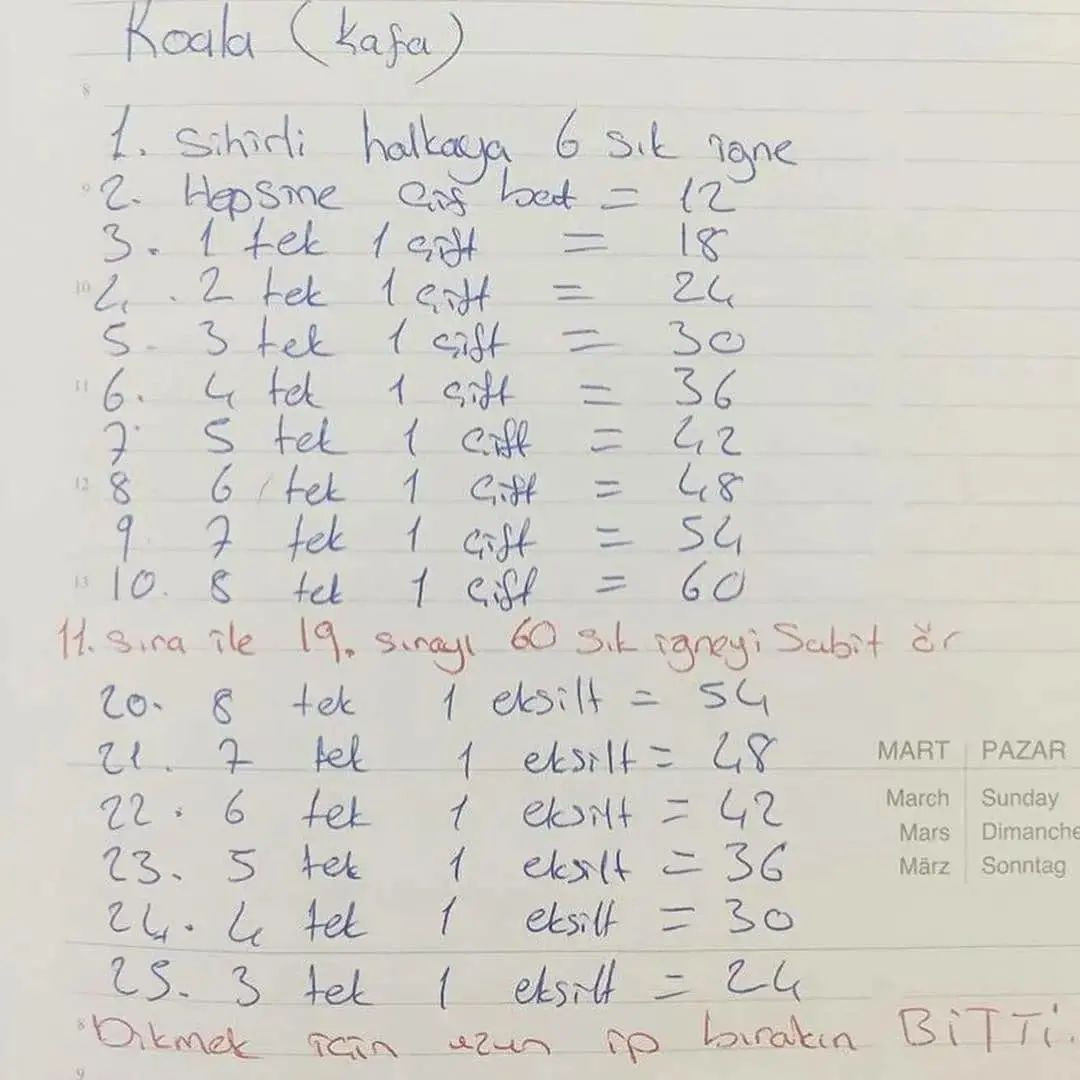 Koala (kafa)
8
1. Sihirli halkaya 6 sık iğne
9 2. Hepsine çif bat = 12
3. 1 tek 1 çift = 18
10 4. 2 tek 1 çift = 24
5. 3 tek 1 çift = 30
11 6. 4 tek 1 çift = 36
7. 5 tek 1 çift = 42
12 8 6 tek 1 çift = 48
9 7 tek 1 çift = 54
13 10. 8 tek 1 çift = 60
11. sıra ile 19. sırayı 60 sık iğneyi Sabit ör
20. 8 tek 1 eksilt = 54
21. 7 tek 1 eksilt = 48
MART PAZAR
22. 6 tek 1 eksilt = 42
March Sunday
Mars Dimanche
23. 5 tek 1 eksilt = 36
März Sonntag
24. 4 tek 1 eksilt = 30
25. 3 tek 1 eksilt = 24
Dikmek için uzun ip bırakın BİTTİ.
9